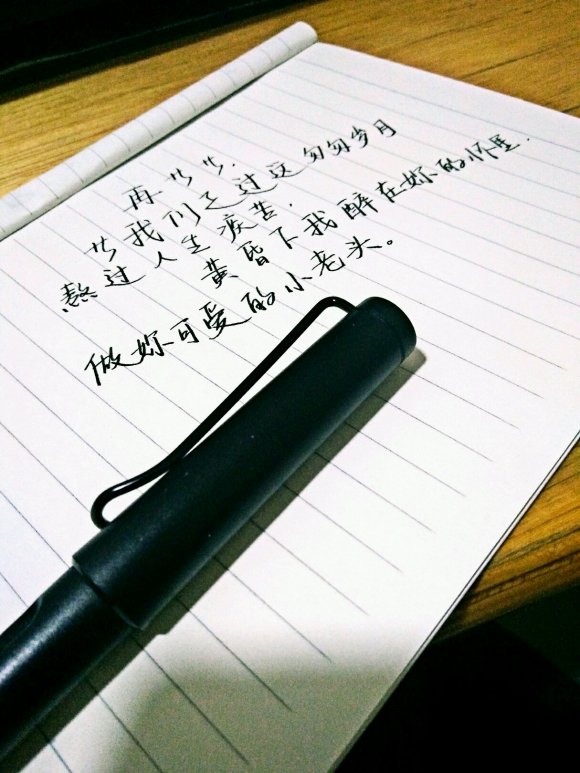 再等等.
等我们走过这匆匆岁月
熬过人生疾苦.
黄昏下我醉在妳的怀里.
做妳可爱的小老头。